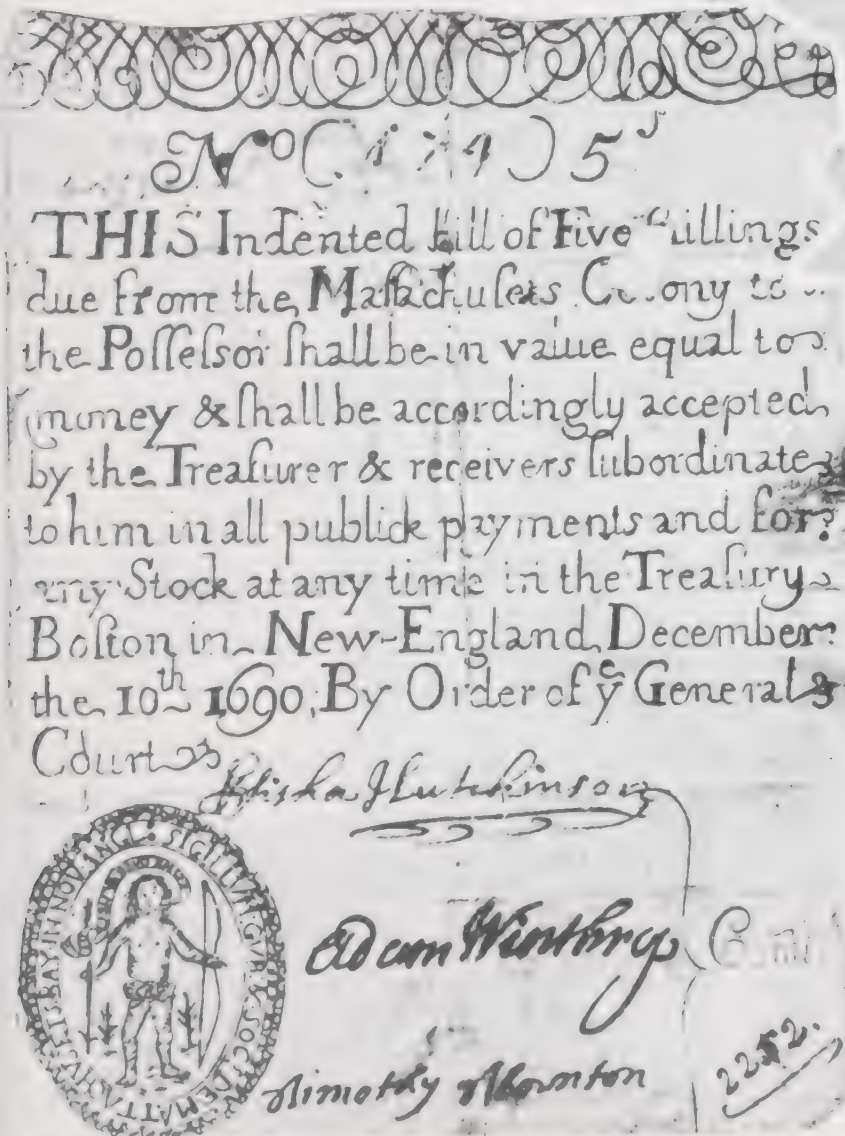 No ( ) 5s
THIS Indented Bill of Five Shillings
due from the Maſſachuſets Colony to
the Poſſeſsor ſhall be in value equal to
money & ſhall be accordingly accepted
by the Treaſurer & receivers ſubordinate
to him in all publick payments and for
any Stock at any time in the Treaſury
Boſton in New-England, December
the 10th 1690. By Order of ye General
Court
Elisha Hutchinson
Adam Winthrop
Comitee
Timothy Thornton
2252.
SIGILLUM GUB & SOC DE MATTACHUSETS BAY IN NOV ANGL: